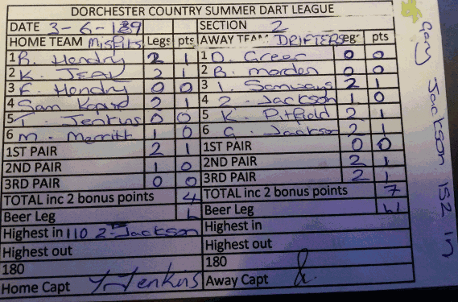 DORCHESTER COUNTRY SUMMER DART LEAGUE
DATE 3-6-189 SECTION 2
HOME TEAM Misfits Legs pts AWAY TEAM DRIFTERS Legs pts
1 R. Hendry 2 1 1 D. Greer 0 0
2 K. JEAN 2 1 2 B. Morden 0 0
3 F. Hendry 0 0 3 I. Samways 2 1
4 Sam 2 1 4 2. Jackson 1 0
5 Jenkins 0 0 5 K. Pitfield 2 1
6 M. Merritt 1 0 6 G. Jackson 2 1
1ST PAIR 2 1 1ST PAIR 0 0
2ND PAIR 1 0 2ND PAIR 2 1
3RD PAIR 0 0 3RD PAIR 2 1
TOTAL inc 2 bonus points 4 TOTAL inc 2 bonus points 7
Beer Leg L Beer Leg W
Highest in 110 2. Jackson Highest in
Highest out Highest out
180 180
Home Capt Y Jenkins Away Capt
Gary Jackson 152 in